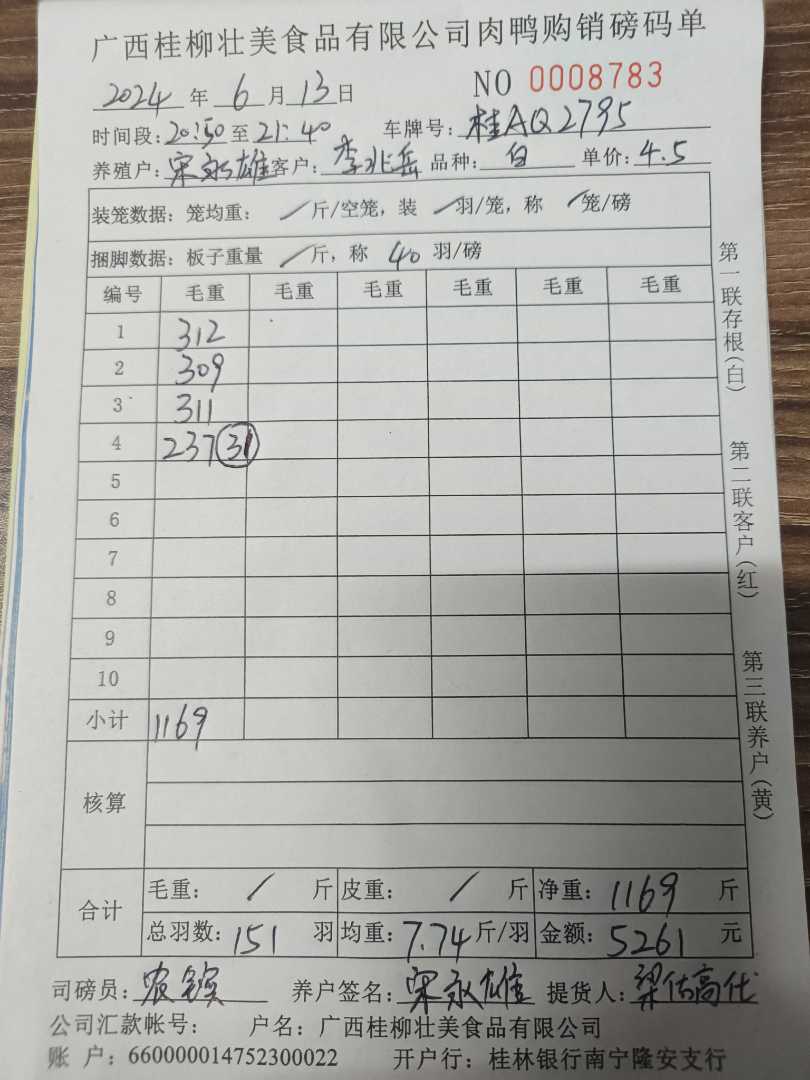 广西桂柳壮美食品有限公司肉鸭购销磅码单
2024年6月13日 NO 0008783
时间段:20:50至21:40 车牌号:桂AQ2795
养殖户:宋永雄客户:李兆岳 品种:白 单价:4.5
装笼数据:笼均重:/斤/空笼,装/羽/笼,称/笼/磅
捆脚数据:板子重量/斤,称40羽/磅
编号 毛重 毛重 毛重 毛重 毛重 毛重
1 312
2 309
3 311
4 237 31
5
6
7
8
9
10
小计 1169
核算
合计 毛重:/斤 皮重:/斤 净重:1169斤
总羽数:151羽 均重:7.74斤/羽 金额:5261元
司磅员:农 养户签名:宋永雄 提货人:梁
公司汇款帐号: 户名:广西桂柳壮美食品有限公司
账 户:660000014752300022 开户行:桂林银行南宁隆安支行
第一联存根(白)
第二联客户(红)
第三联养户(黄)